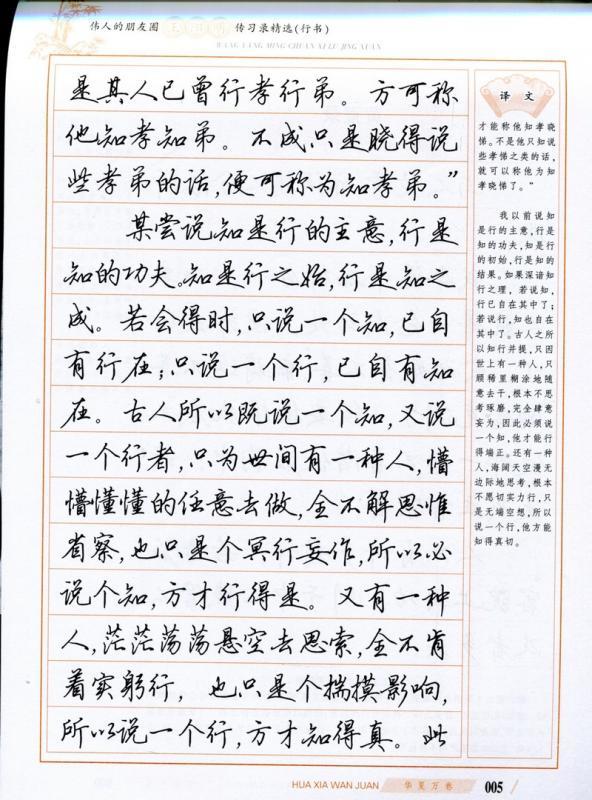 伟人的朋友圈 王阳明 传习录精选(行书)
WANG YANG MING CHUAN XI LU JING XUAN
是其人已曾行孝行弟。方可称
他知孝知弟。不成只是晓得说
些孝弟的话,便可称为知孝弟。”
某尝说知是行的主意,行是
知的功夫。知是行之始,行是知之
成。若会得时,只说一个知,已自
有行在;只说一个行,已自有知
在。古人所以既说一个知,又说
一个行者,只为世间有一种人,懵
懵懂懂的任意去做,全不解思惟
省察,也只是个冥行妄作,所以必
说个知,方才行得是。又有一种
人,茫茫荡荡悬空去思索,全不肯
着实躬行,也只是个揣摸影响,
所以说一个行,方才知得真。此
译文
才能称他知孝晓
悌。不是他只知说
些孝悌之类的话,
就可以称他为知
孝晓悌了。”
我以前说知
是行的主意,行是
知的功夫,知是行
的初始,行是知的
结果。如果深谙知
行之理,若说知,
行已自在其中了;
若说行,知也自在
其中了。古人之所
以知行并提,只因
世上有一种人,只
顾稀里糊涂地随
意去干,根本不思
考琢磨,完全肆意
妄为,因此必须说
一个知,他才能行
得端正。还有一种
人,海阔天空漫无
边际地思考,根本
不愿切实力行,只
是无端空想,所以
说一个行,他方能
知得真切。
HUA XIA WAN JUAN 华夏万卷 005